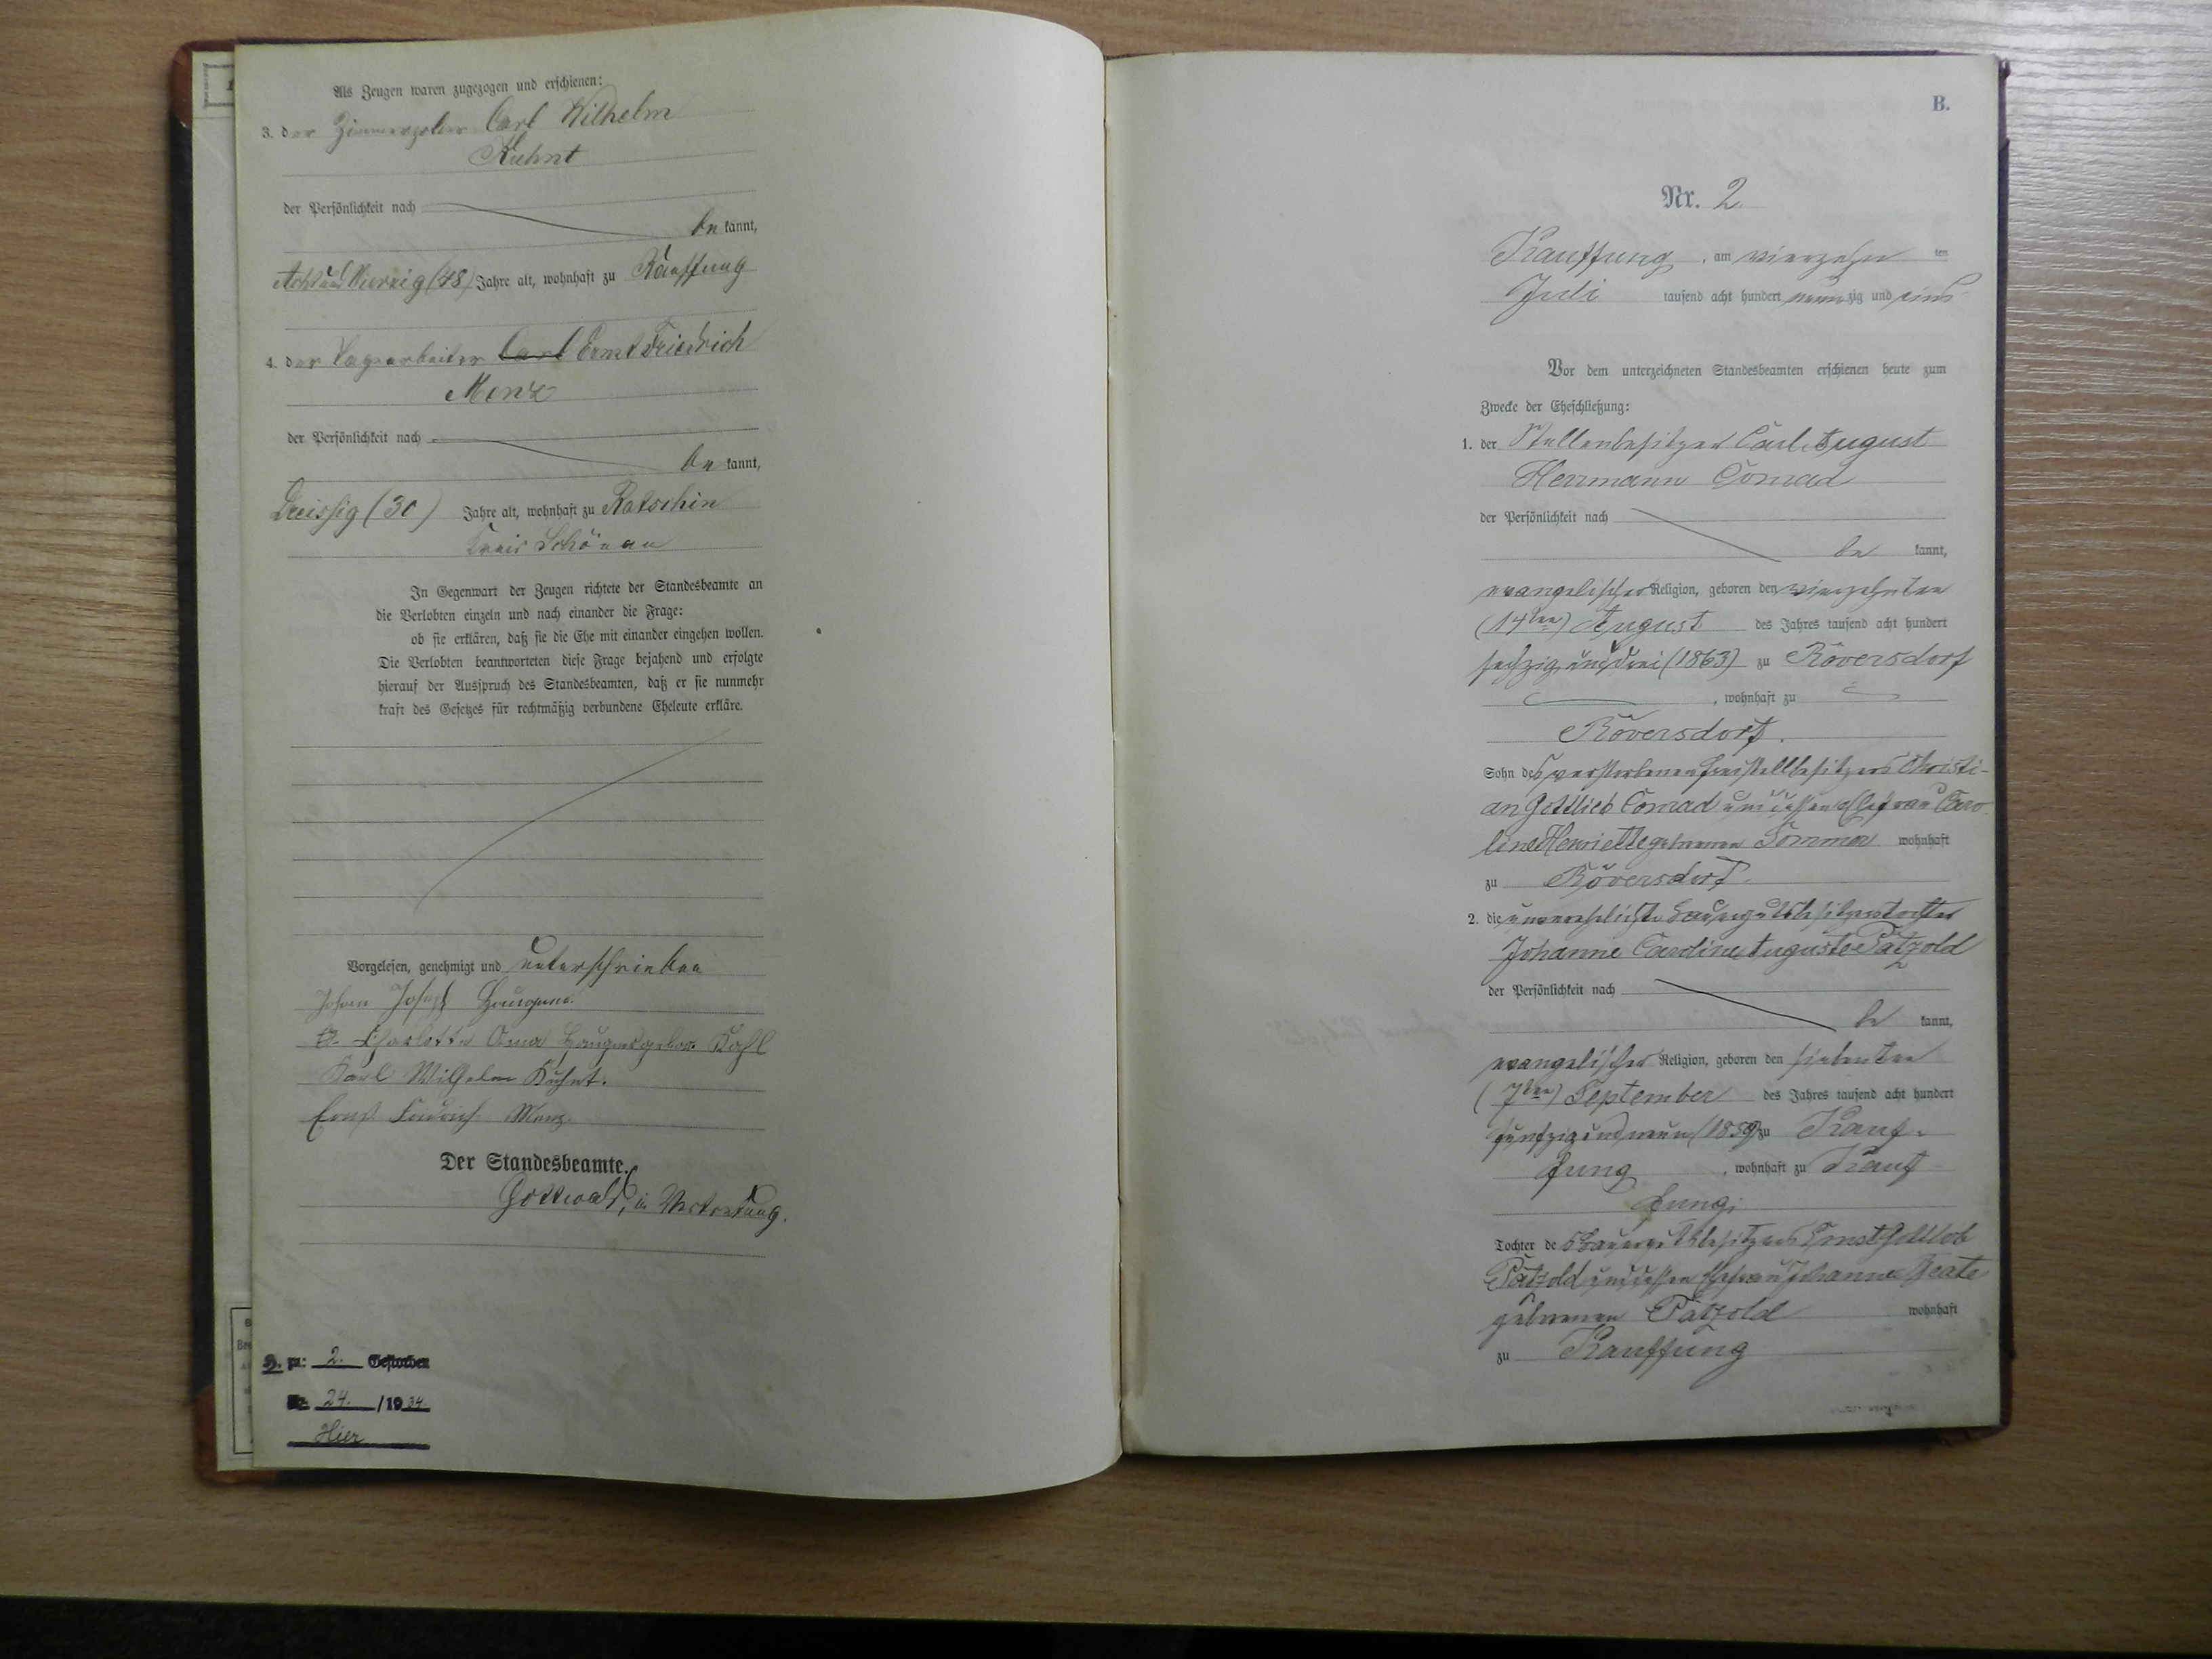 Als Zeugen waren zugezogen und erschienen:
3. der Carl Wilhelm
Kuhnt
der Persönlichkeit nach
be kannt,
Acht und Vierzig (48) Jahre alt, wohnhaft zu Kauffung
4. der Carl Ernst Friedrich
Menz
der Persönlichkeit nach
be kannt,
Dreissig (30) Jahre alt, wohnhaft zu Ratschin
Kreis Schönau
In Gegenwart der Zeugen richtete der Standesbeamte an
die Verlobten einzeln und nach einander die Frage:
ob sie erklären, daß sie die Ehe mit einander eingehen wollen.
Die Verlobten beantworteten diese Frage bejahend und erfolgte
hierauf der Ausspruch des Standesbeamten, daß er sie nunmehr
kraft des Gesetzes für rechtmäßig verbundene Eheleute erkläre.
Vorgelesen, genehmigt und unterschrieben
Johann Joseph
Charlotte Anna
Karl Wilhelm Kuhnt.
Ernst Friedrich Menz.
Der Standesbeamte.
Gottwald, in Vertretung.
H. zu: 2. Gestorben
Nr. 24. /1934
Hier
B.
Nr. 2
Kauffung, am vierzehn ten
Juli tausend acht hundert neunzig und eins
Vor dem unterzeichneten Standesbeamten erschienen heute zum
Zwecke der Eheschließung:
1. der Stellenbesitzer Carl August
Herrmann Conrad
der Persönlichkeit nach
be kannt,
evangelischer Religion, geboren den vierzehnten
(14ten) August des Jahres tausend acht hundert
sechzig und drei (1863) zu Röversdorf
, wohnhaft zu
Röversdorf.
Sohn des verstorbenen Freistellbesitzers Christi-
an Gottlieb Conrad und dessen Ehefrau Caro
line Henriette geborenen Sommer wohnhaft
zu Röversdorf.
2. die unverehelichte Bauergutsbesitzerstochter
Johanne Caroline Auguste Pätzold
der Persönlichkeit nach
be kannt,
evangelischer Religion, geboren den siebenten
(7ten) September des Jahres tausend acht hundert
fünfzig und neun (1859) zu Kauf-
fung, wohnhaft zu Kauf-
fung,
Tochter des Bauergutsbesitzers Ernst Gottlob
Pätzold und dessen Ehefrau Johanne Beate
geborenen Pätzold wohnhaft
zu Kauffung